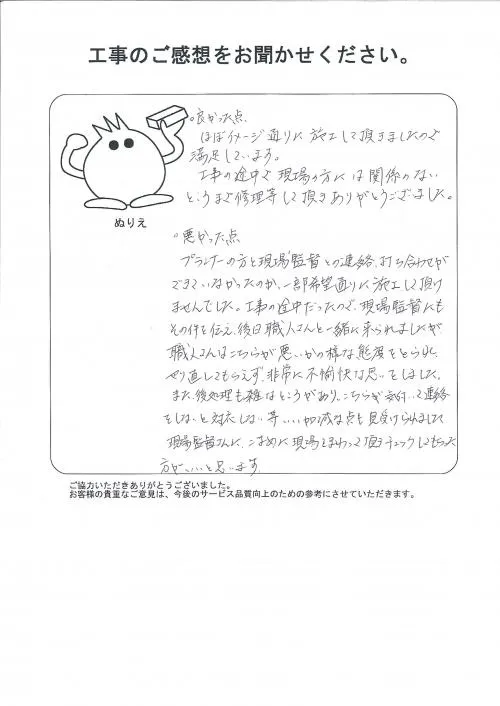 工事のご感想をお聞かせください。
。良かった点
ほぼイメージ通りに施工して頂きましたので
満足しています。
工事の途中で現場の方には関係のない
ところまで修理等して頂きありがとうございました。
ぬりえ
。悪かった点
プランナーの方と現場監督との連絡、打ち合わせが
できていなかったのか、一部希望通りに施工して頂け
ませんでした。工事の途中だったので、現場監督にも
その件を伝え、後日職人さんと一緒に来られましたが
職人さんはこちらが悪いかの様な態度をとられ、
やり直してもらえず、非常に不愉快な思いをしました。
また、後処理も雑なところがあり、こちらが気付いて連絡
をしないと対応しない等いい加減な点も見受けられました
現場監督さんに、こまめに現場をまわって頂きチェックしてもらった
方がいいと思います
ご協力いただきありがとうございました。
お客様の貴重なご意見は、今後のサービス品質向上のための参考にさせていただきます。